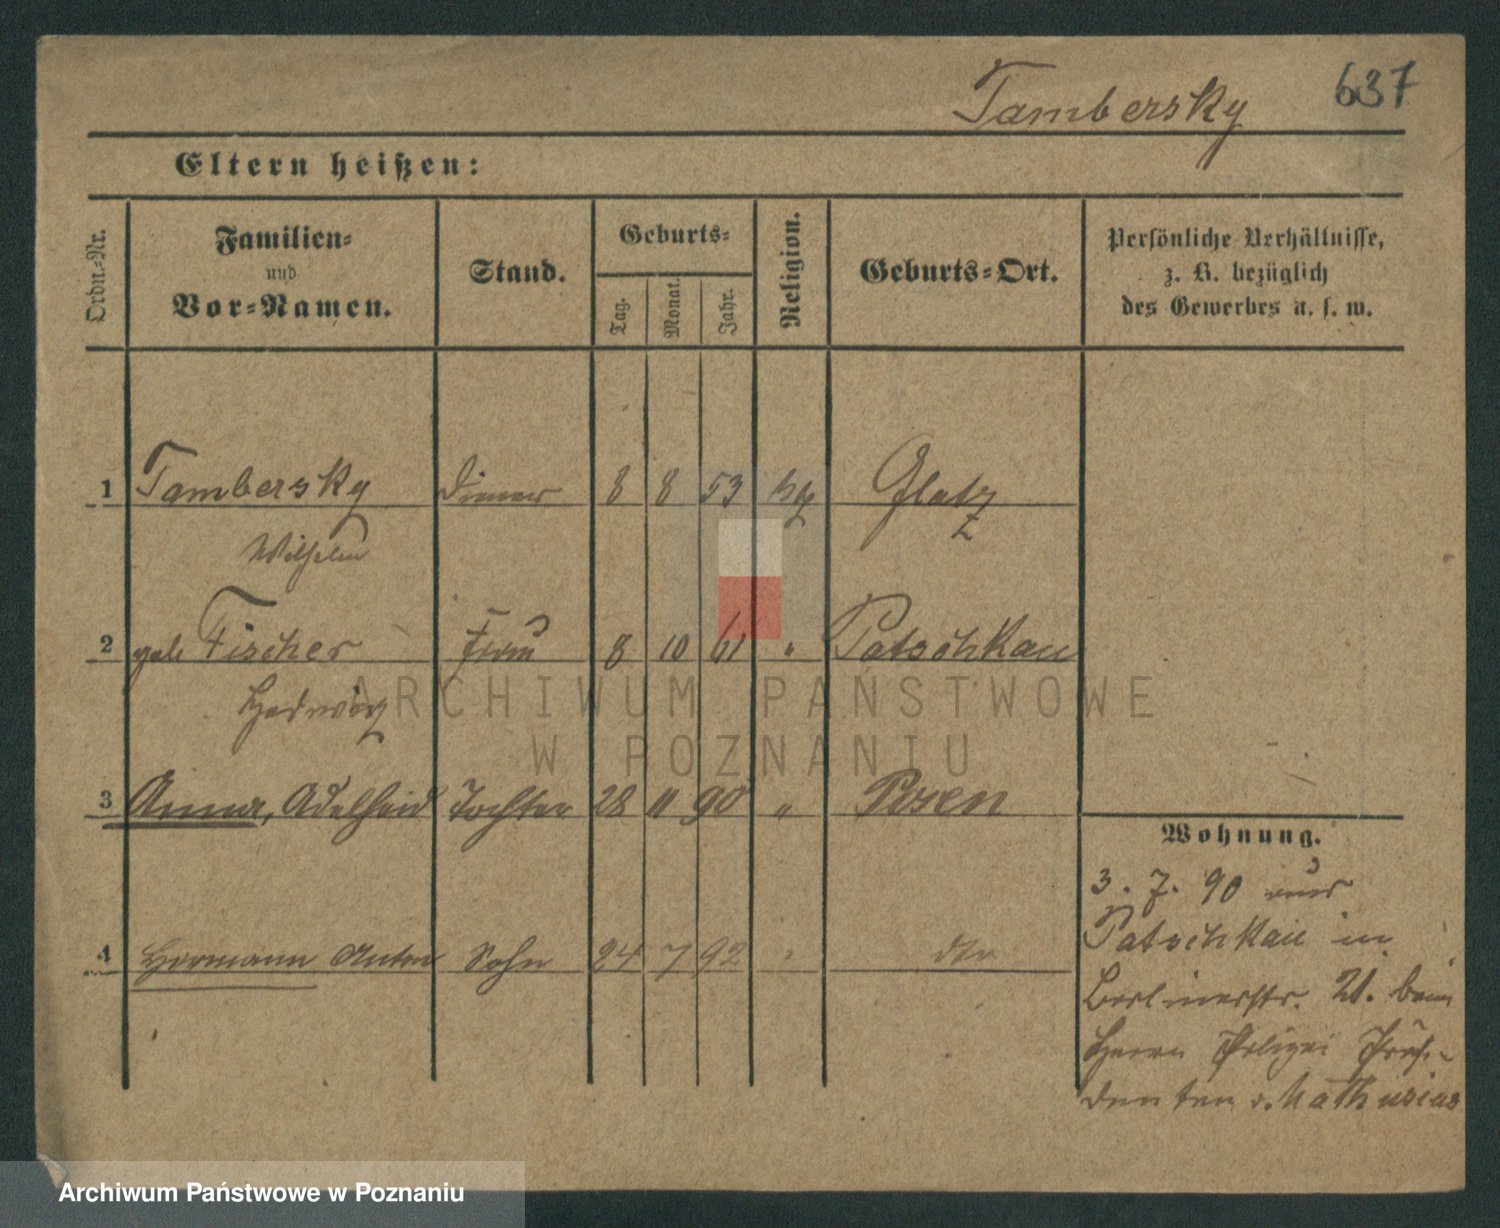 Tambersky 637
Eltern heißen:
Ordn.-Nr. Familien- und Vor-Namen. Stand. Geburts- Tag. Monat. Jahr. Religion. Geburts-Ort. Persönliche Verhältnisse, z. B. bezüglich des Gewerbes u. s. w.
1 Tambersky Diener 8 8 53 kg Glatz
Wilhelm
2 geb Fischer Frau 8 10 61 " Patschkau
Hedwig
3 Anna, Adelheid Tochter 28 11 90 " Posen
4 Hermann Anton Sohn 24 7 92 " dto
Wohnung.
3. 7. 90 aus
Patschkau in
Berlinerstr. 21. beim
Herrn Polizei Präsi-
denten v. Nathusius
ARCHIWUM PAŃSTWOWE
W POZNANIU
Archiwum Państwowe w Poznaniu